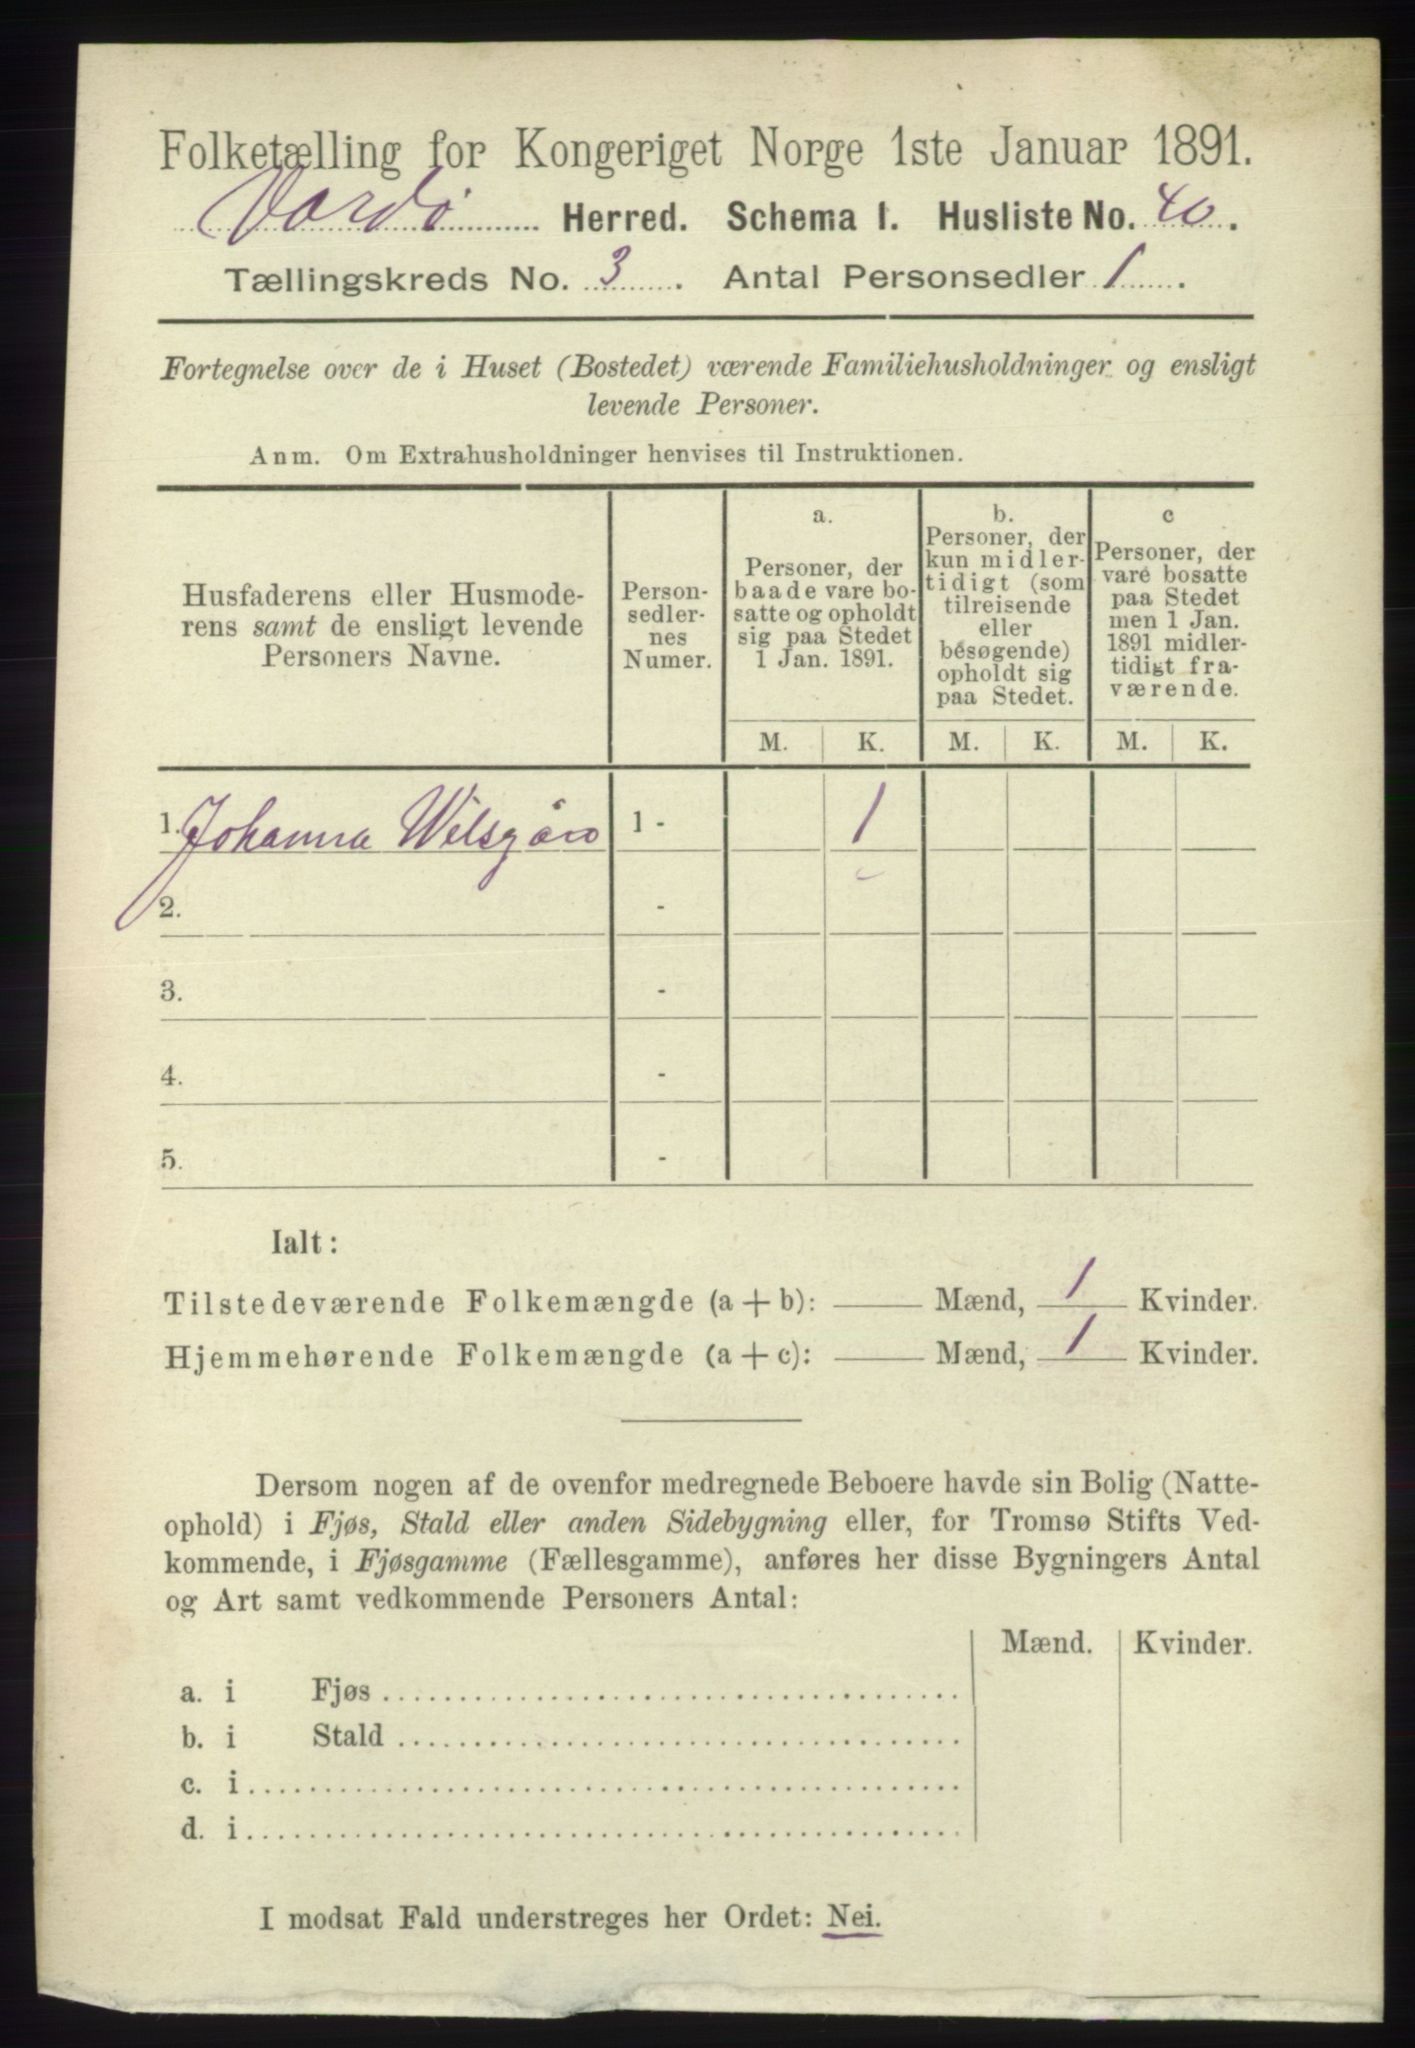 Folketælling for Kongeriget Norge 1ste Januar 1891.
Vardø Herred. Schema 1. Husliste No. 40.
Tællingskreds No. 3. Antal Personsedler 1.
Fortegnelse over de i Huset (Bostedet) værende Familiehusholdninger og ensligt
levende Personer.
Anm. Om Extrahusholdninger henvises til Instruktionen.
Husfaderens eller Husmode-
rens samt de ensligt levende
Personers Navne.
Person-
sedler-
nes
Numer.
a.
Personer, der
baade vare bo-
satte og opholdt
sig paa Stedet
1 Jan. 1891.
b.
Personer, der
kun midler-
tidigt (som
tilreisende
eller
besøgende)
opholdt sig
paa Stedet.
c
Personer, der
vare bosatte
paa Stedet
men 1 Jan.
1891 midler-
tidigt fra-
værende.
M. K. M. K. M. K.
1. Johanna 1 - 1
2. -
3. -
4. -
5. -
Ialt:
Tilstedeværende Folkemængde (a + b): Mænd, 1 Kvinder.
Hjemmehørende Folkemængde (a + c): Mænd, 1 Kvinder.
Dersom nogen af de ovenfor medregnede Beboere havde sin Bolig (Natte-
ophold) i Fjøs, Stald eller anden Sidebygning eller, for Tromsø Stifts Ved-
kommende, i Fjøsgamme (Fællesgamme), anføres her disse Bygningers Antal
og Art samt vedkommende Personers Antal:
Mænd. Kvinder.
a. i Fjøs
b. i Stald
c. i
d. i
I modsat Fald understreges her Ordet: Nei.